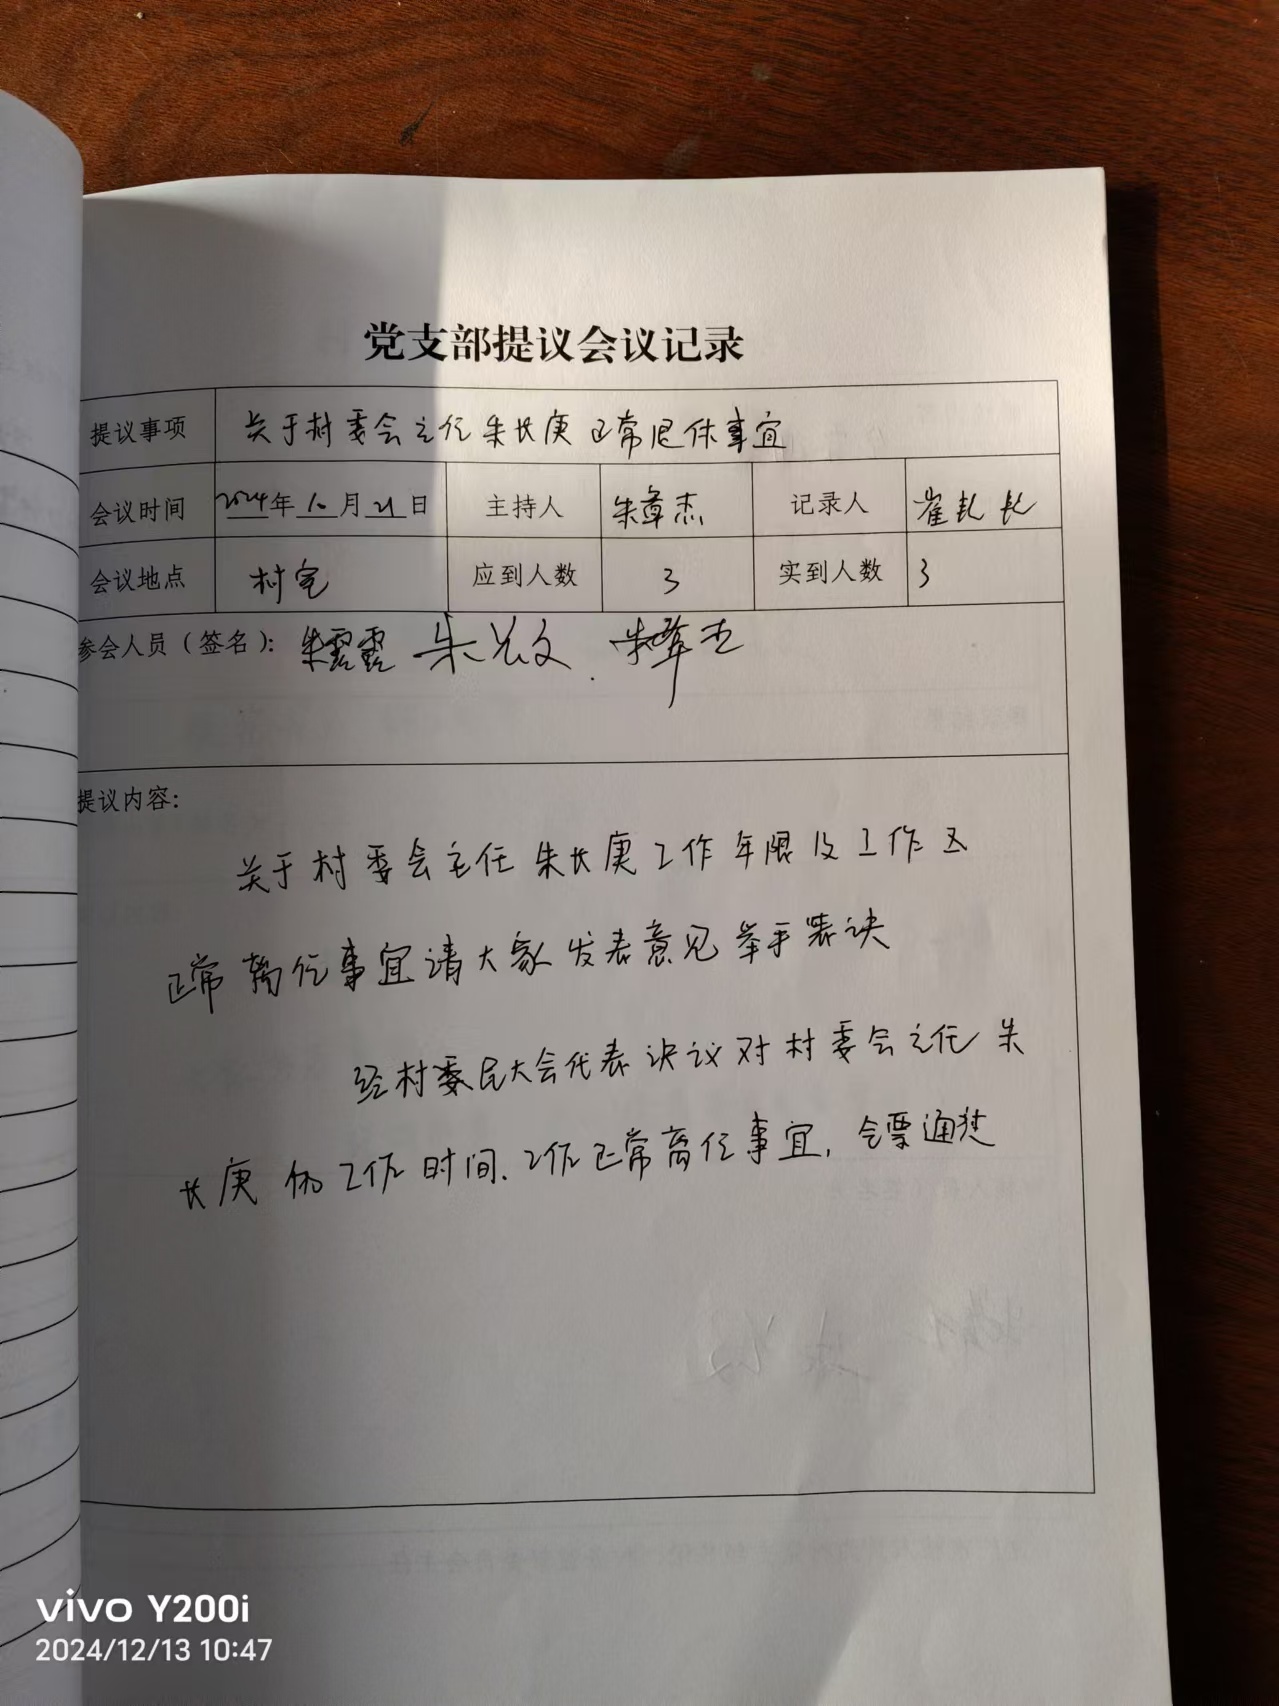 党支部提议会议记录
提议事项 关于村委会主任朱长庚正常退休事宜
会议时间 2024年10月21日 主持人 朱章杰 记录人 崔 长
会议地点 村室 应到人数 3 实到人数 3
参会人员（签名）： 朱霞霞 朱兴文 朱章杰
提议内容：
关于村委会主任朱长庚工作年限及工作
正常离任事宜请大家发表意见举手表决
经村委民大会代表决议对村委会主任朱
长庚的工作时间、工作正常离任事宜，全票通过
vivo Y200i
2024/12/13 10:47